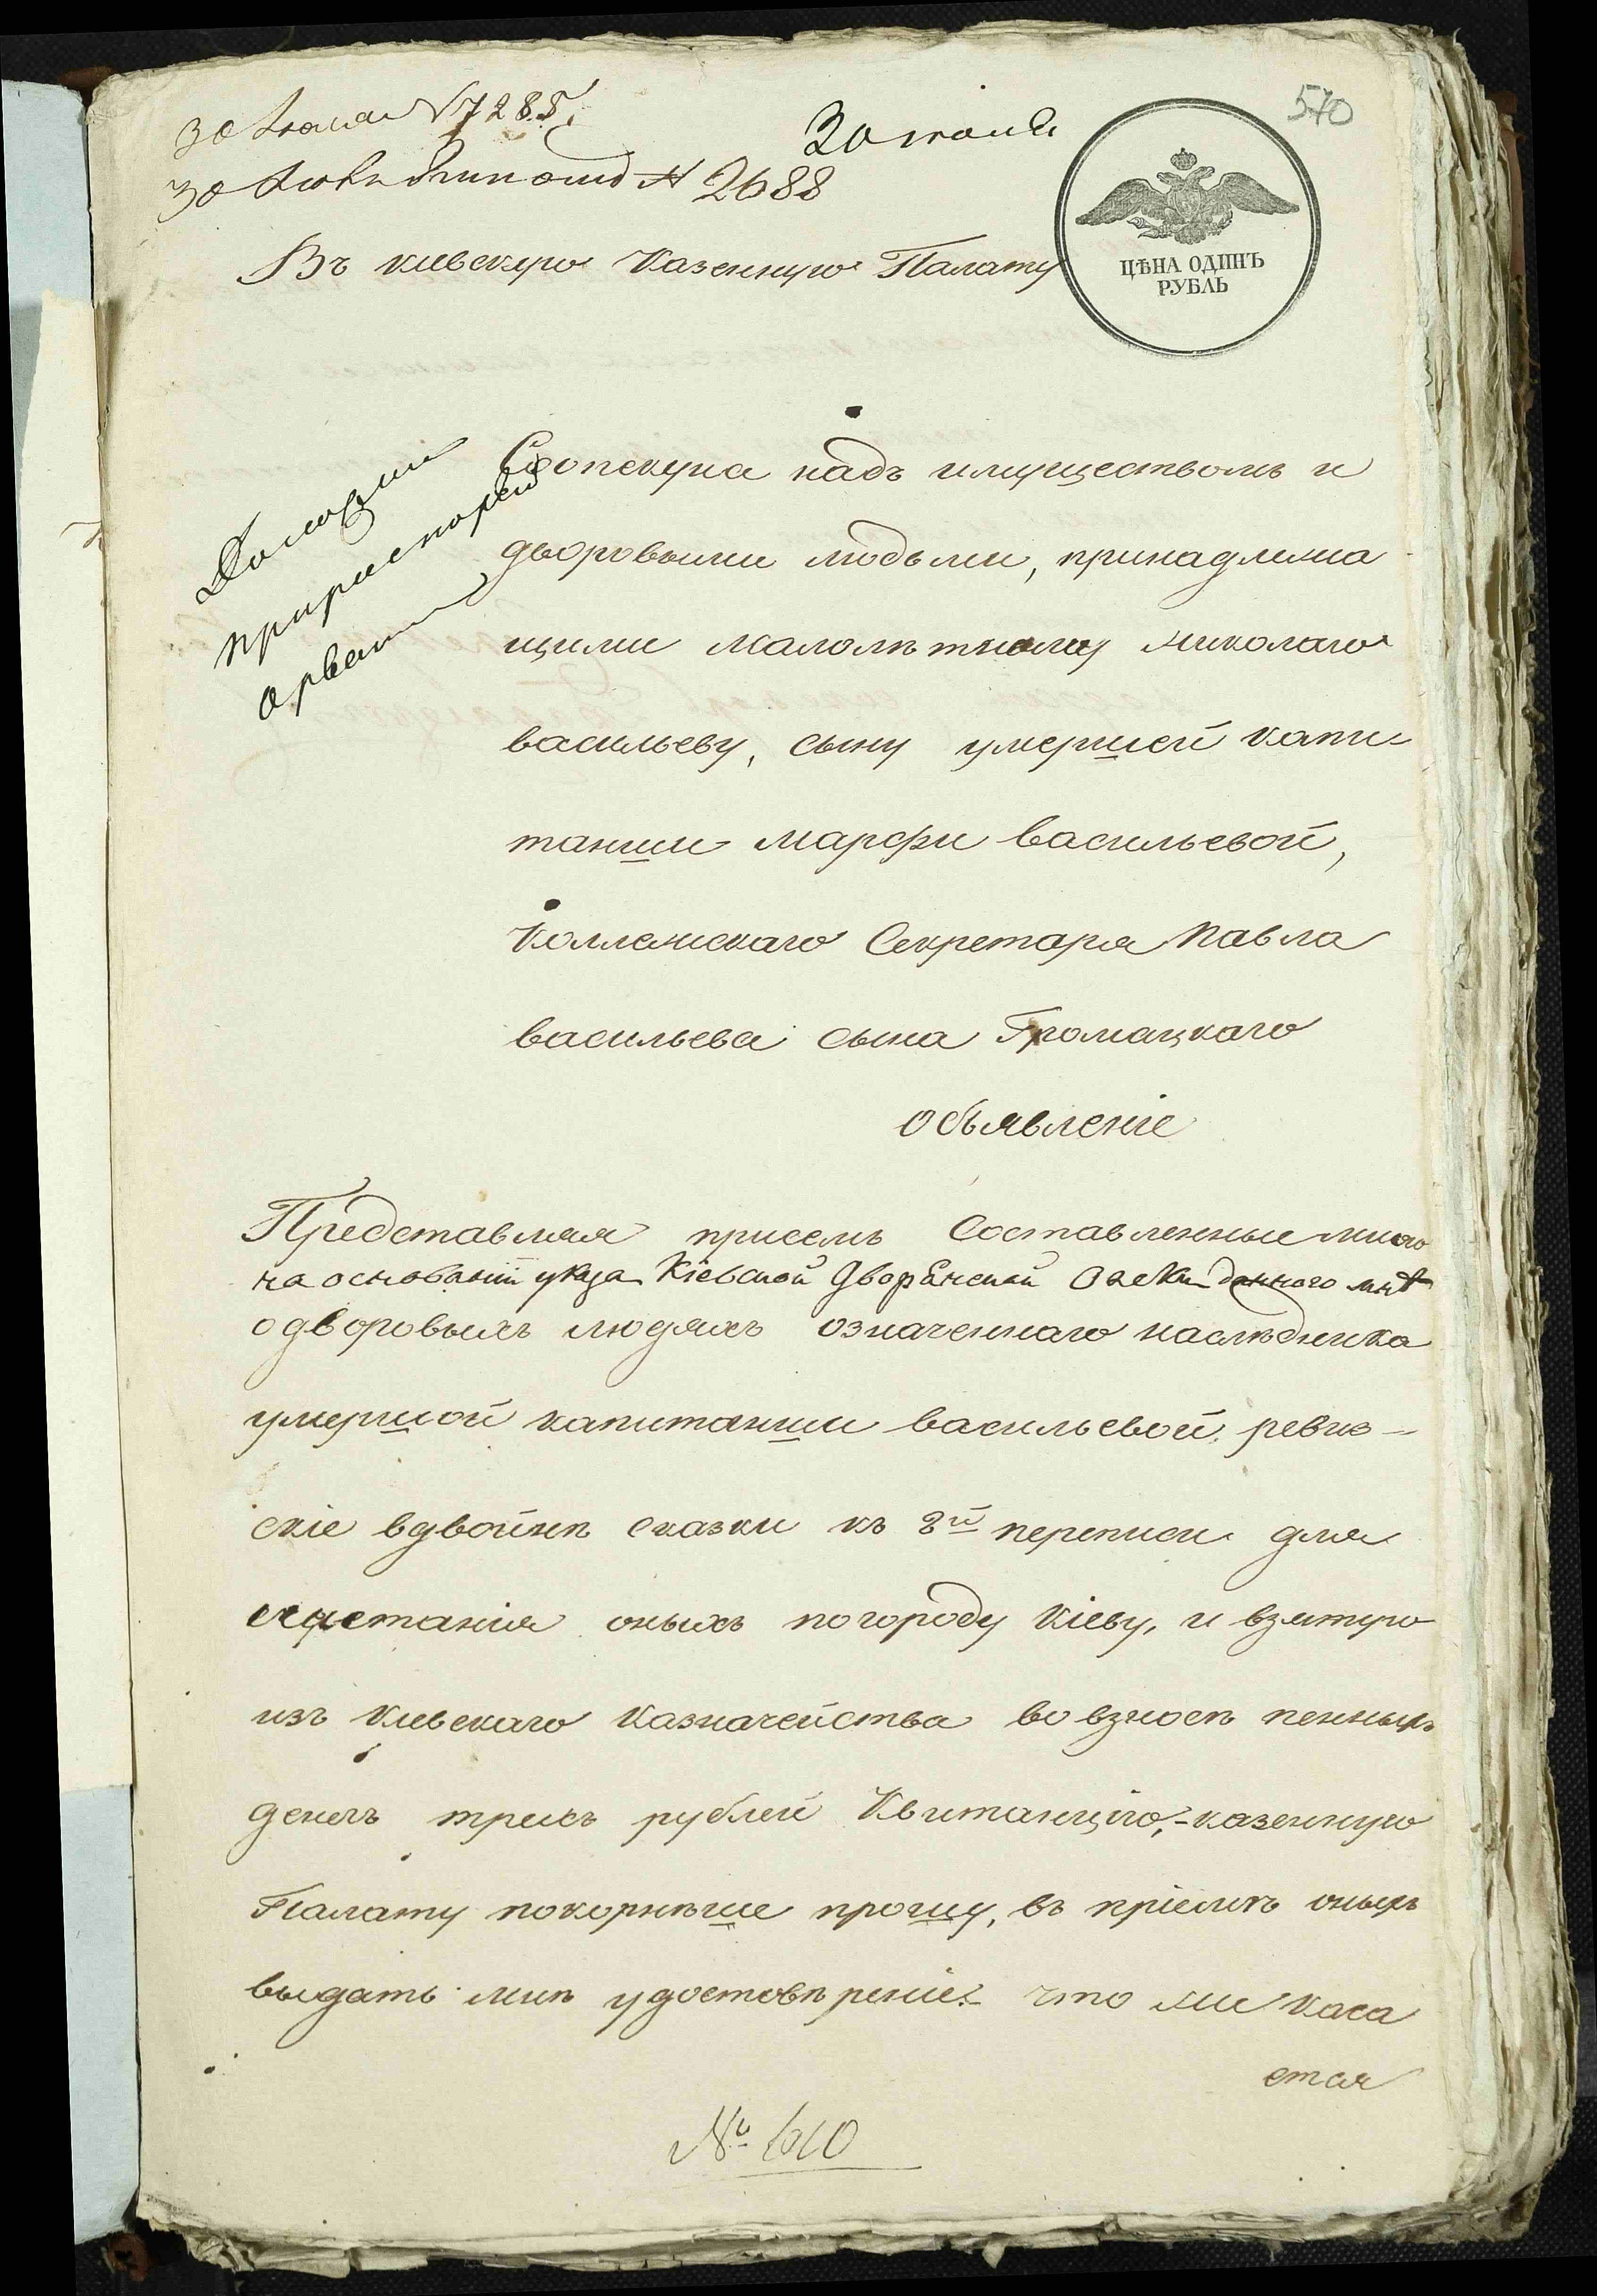 570
30 Июня № 7288
30 июня
№ 2688
Въ киевскую Казенную Палату
ЦѢНА ОДИНЪ
РУБЛЬ
Соопекуна надъ имуществомъ и
дворовыми людьми, принадлежа
щими малолѣтнему николаю
васильеву, сыну умершей капи-
танши марфи васильевой,
Коллежскаго Секретаря Павла
васильева сына Громацкаго
объявленіе
Представляя присемъ Составленные мною
на основаніи указа Кіевской Дворянской Опеки данного мнѣ
о дворовыхъ людяхъ означеннаго наслѣдника
умершой капитанши васильевой ревиз-
скіе вдвойнѣ сказки къ 8й переписи для
счетанія оныхъ по городу Кіеву, и взятую
изъ Киевскаго Казначейства во взносѣ пенныхъ
денегъ трехъ рублей Квитанцію,-казенную
Палату покорнѣше прошу, въ пріемѣ оныхъ
выдать мнѣ удостовѣреніе. что же каса
ется
№ 610